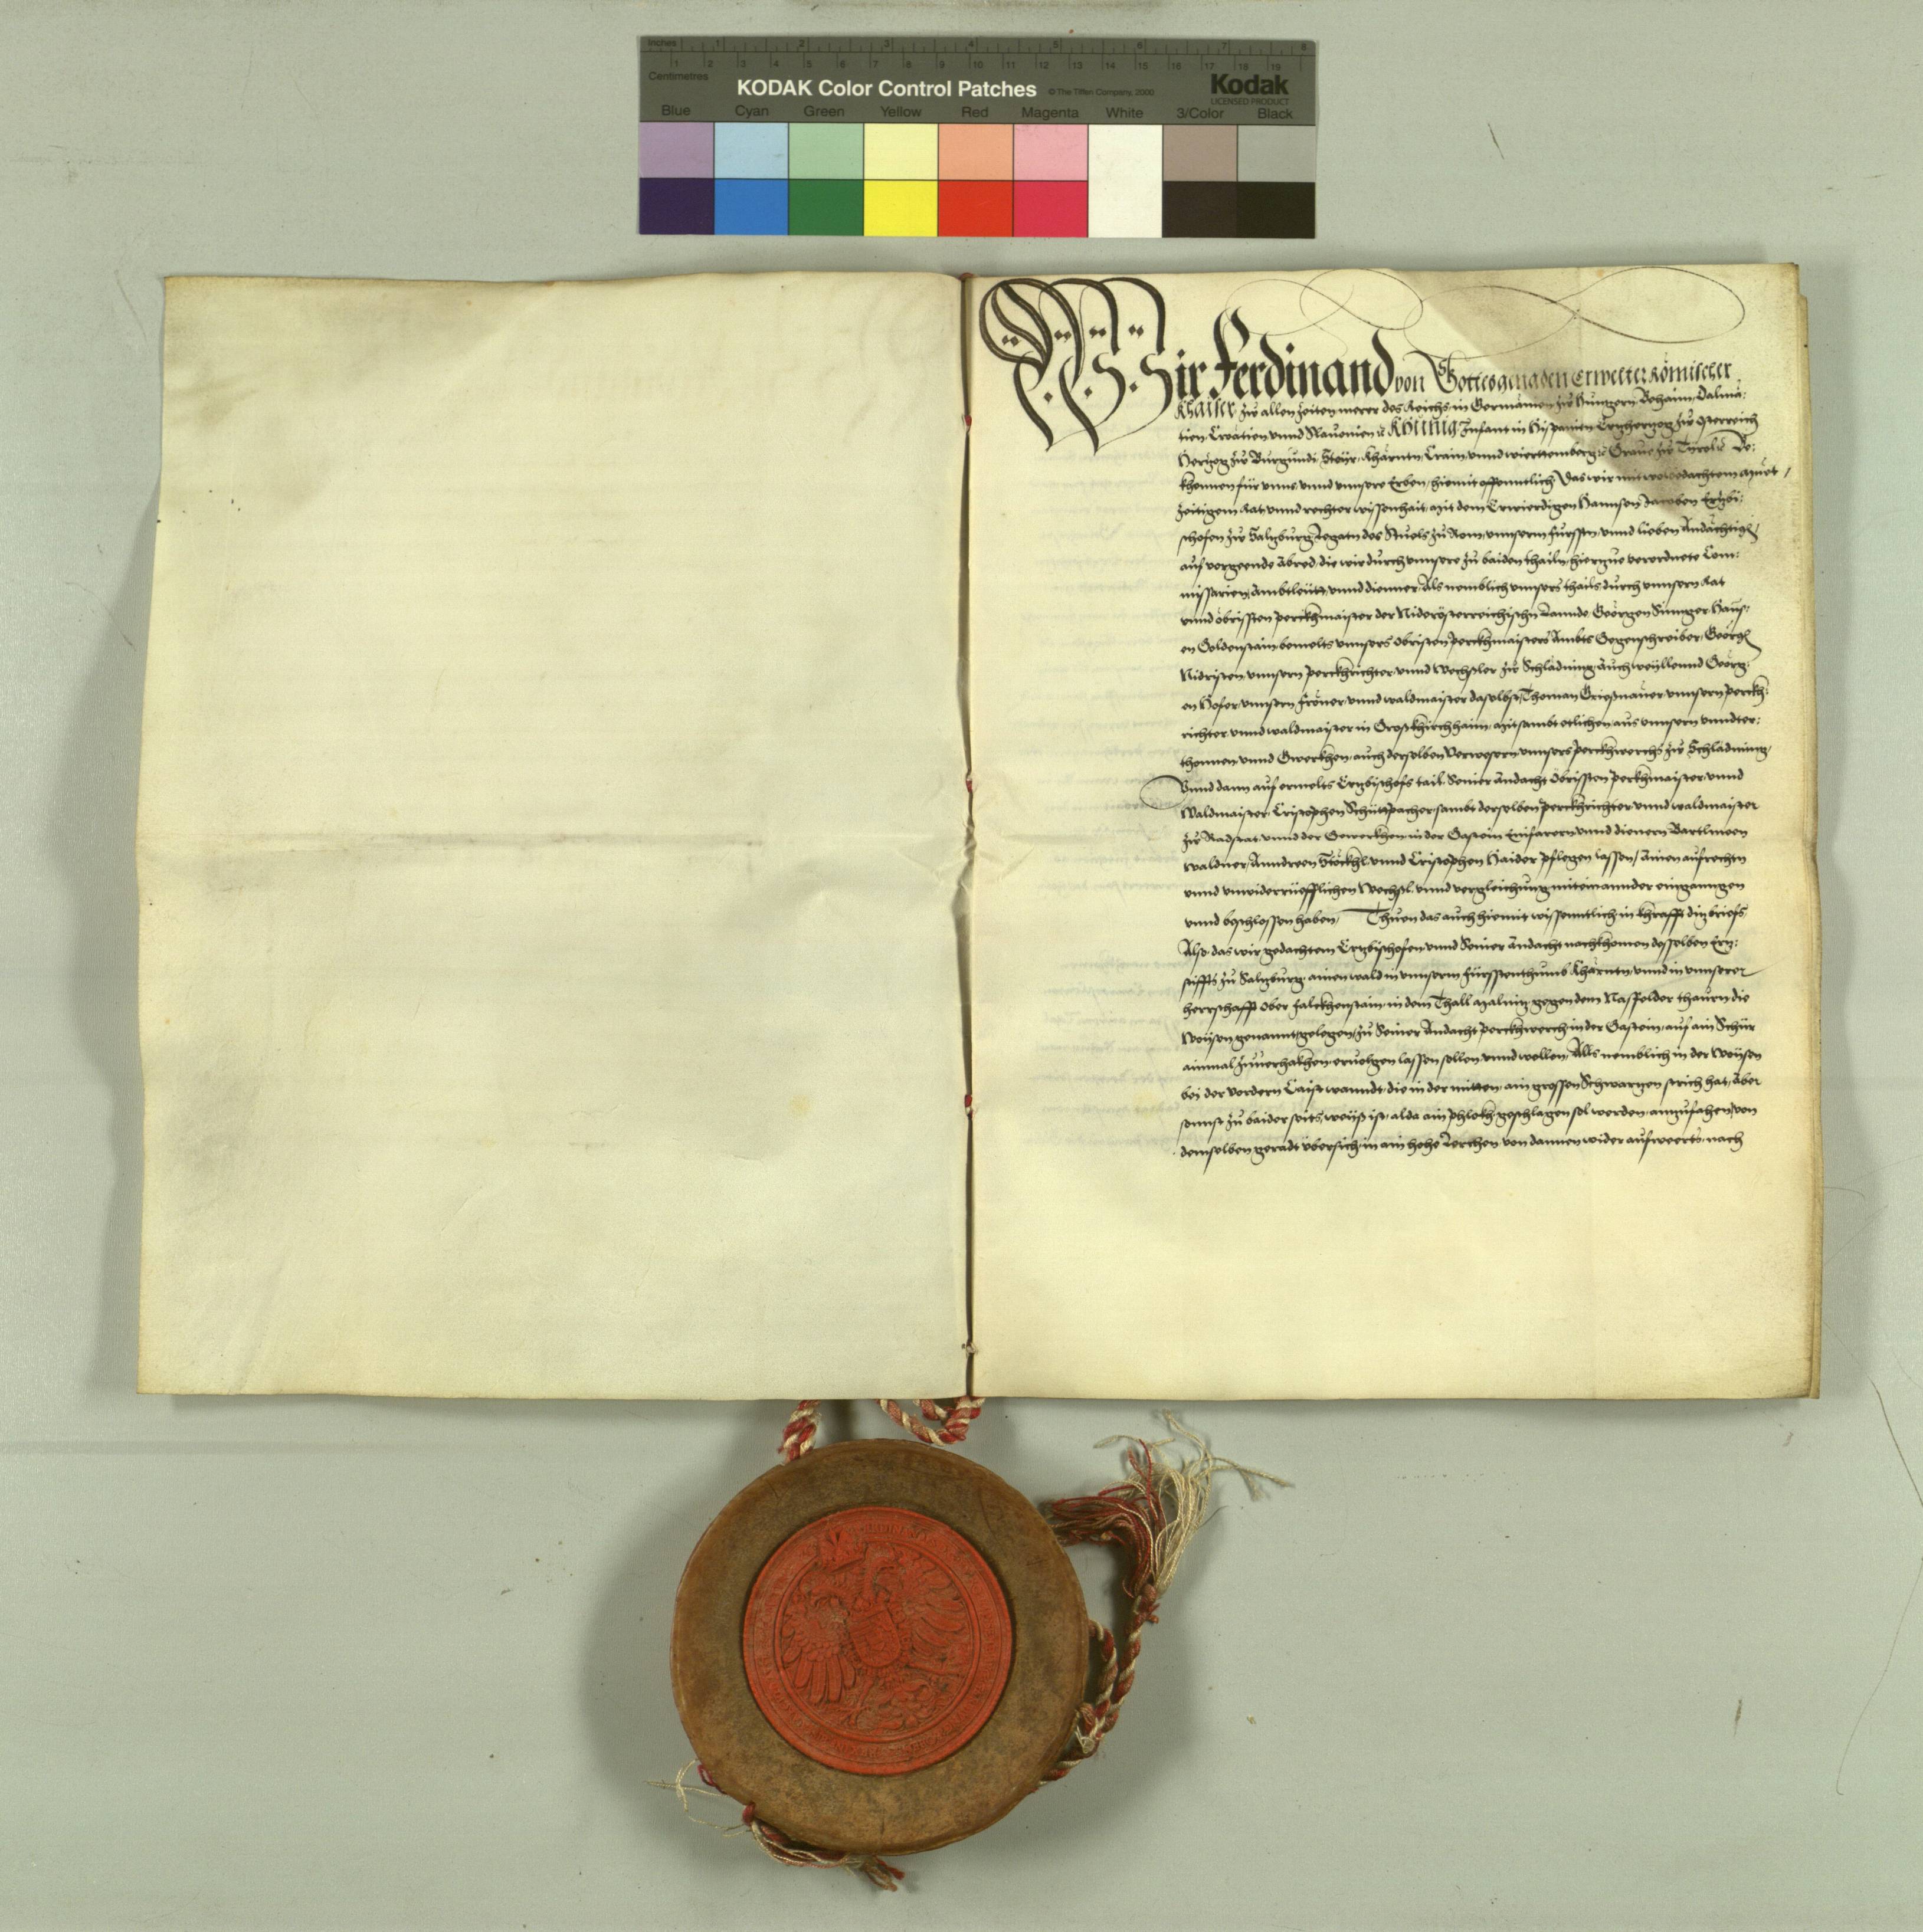 Inches 1 2 3 4 5 6 7 8
1 2 3 4 5 6 7 8 9 10 11 12 13 14 15 16 17 18 19
Centimetres
KODAK Color Control Patches © The Tiffen Company, 2000 Kodak
LICENSED PRODUCT
Blue Cyan Green Yellow Red Magenta White 3/Color Black
Wir Ferdinand von Gottes genaden Erwelter Römischer
Khaiser zu allen Zeiten merer des Reichs in Germanien zu Hungern Behaim, Dalma:
tien Croatien vnnd Slauonien &c. Khünig Infant in Hispanien Ertzhertzog zu Osterreich
Hertzog zu Burgundi, Steyr, Khärntn, Crain, vnnd wierttemberg &c. Graue zu Tyrol &c. Be:
khennen für vnns, vnnd vnnsere Erben, hiemit offenntlich, Das wir mit wolbedachtem muet,
zeitigem Rat vnnd rechter wissenhait, mit dem Erwierdigen Hannsen Jacoben Ertzbi:
schofen zu Saltzburg Legatn des Stuels zu Rom, vnnserm fürsstn, vnnd lieben Andächtign,
auf vorgeende Abred, die wir durch vnnsere zu baiden thailn, hierzue verordnete Com:
missarien, Ambtleütt, vnnd dienner, Als nemblich vnnsers thails durch vnnsern Rat
vnnd öbrissten Perckhmaister der Niderösterreichischn Lannde Geörgen Singer Hans:
en Goldenstain bemelts vnnsers obristen Perckhmaisters Ambts Gegenschreiber, Geörgn
Nidristen, vnnsern Perckhrichter, vnnd Wechsler zu Schladming, auch weyllennd Geörg:
en Hofer, vnnsern fröner, vnnd waldmaister daselbst, Thoman Griesmauer vnnsern Perckh:
richter vnnd waldmaister in Groskhirchhaim, mit sambt etlichen aus vnnsern vnndter:
thonnen vnnd Gwerkhen, auch derselben Verwesern, vnnsers Perckhwerchs zu Schladming,
Vnnd dann auf ermelts Ertzbischofs tail, Seiner Andacht Obrissten Perkhmaister, vnnd
Waldmaister, Cristophen Schüttpacher, sambt derselben Perckhrichter vnnd waldmaister
zu Radstat vnnd der Gewerkhen in der Gastein Einfarern vnnd dienern Bartlmeen
Waldner, Anndreen Stöckhl, vnnd Cristophen Haider pflegen lassen, Ainen aufrechtn
vnnd vnwiderrüefflichen Wechsl, vnnd vergleichung miteinannder eingangen
vnnd beschlossen haben, Thuen das auch hiemit wissenntlich in khrafft ditz briefs
Also, das wir gedachtem Ertzbischofen vnnd Seiner andacht nachkhomen desselben Ertz:
stiffts zu Saltzburg, ainen wald in vnnserm fürsstenthumb Khärntn, vnnd in vnnserer
herrschafft ober Falckhenstain, in dem Thall Malnitz, gegen dem Nassfelder thaurn die
Weysen genannt, gelegen, zu Seiner Andacht Perckhwerch in der Gastein, auf ain Schür
ainmal zuuerhakhen, eruolgen lassen sollen vnnd wellen, Alls nemblich in der Weysen
bei der vordern Laist wanndt, die in der mitten, ain grossen Schwartzen strich hat, Aber
sonnst zu baider seits weiß ist, alda ain phlokh geschlagen sol werden, anzufahen, von
demselben geradt übersich, in ain hohe Lerchen, von dannen wider aufweerts, nach